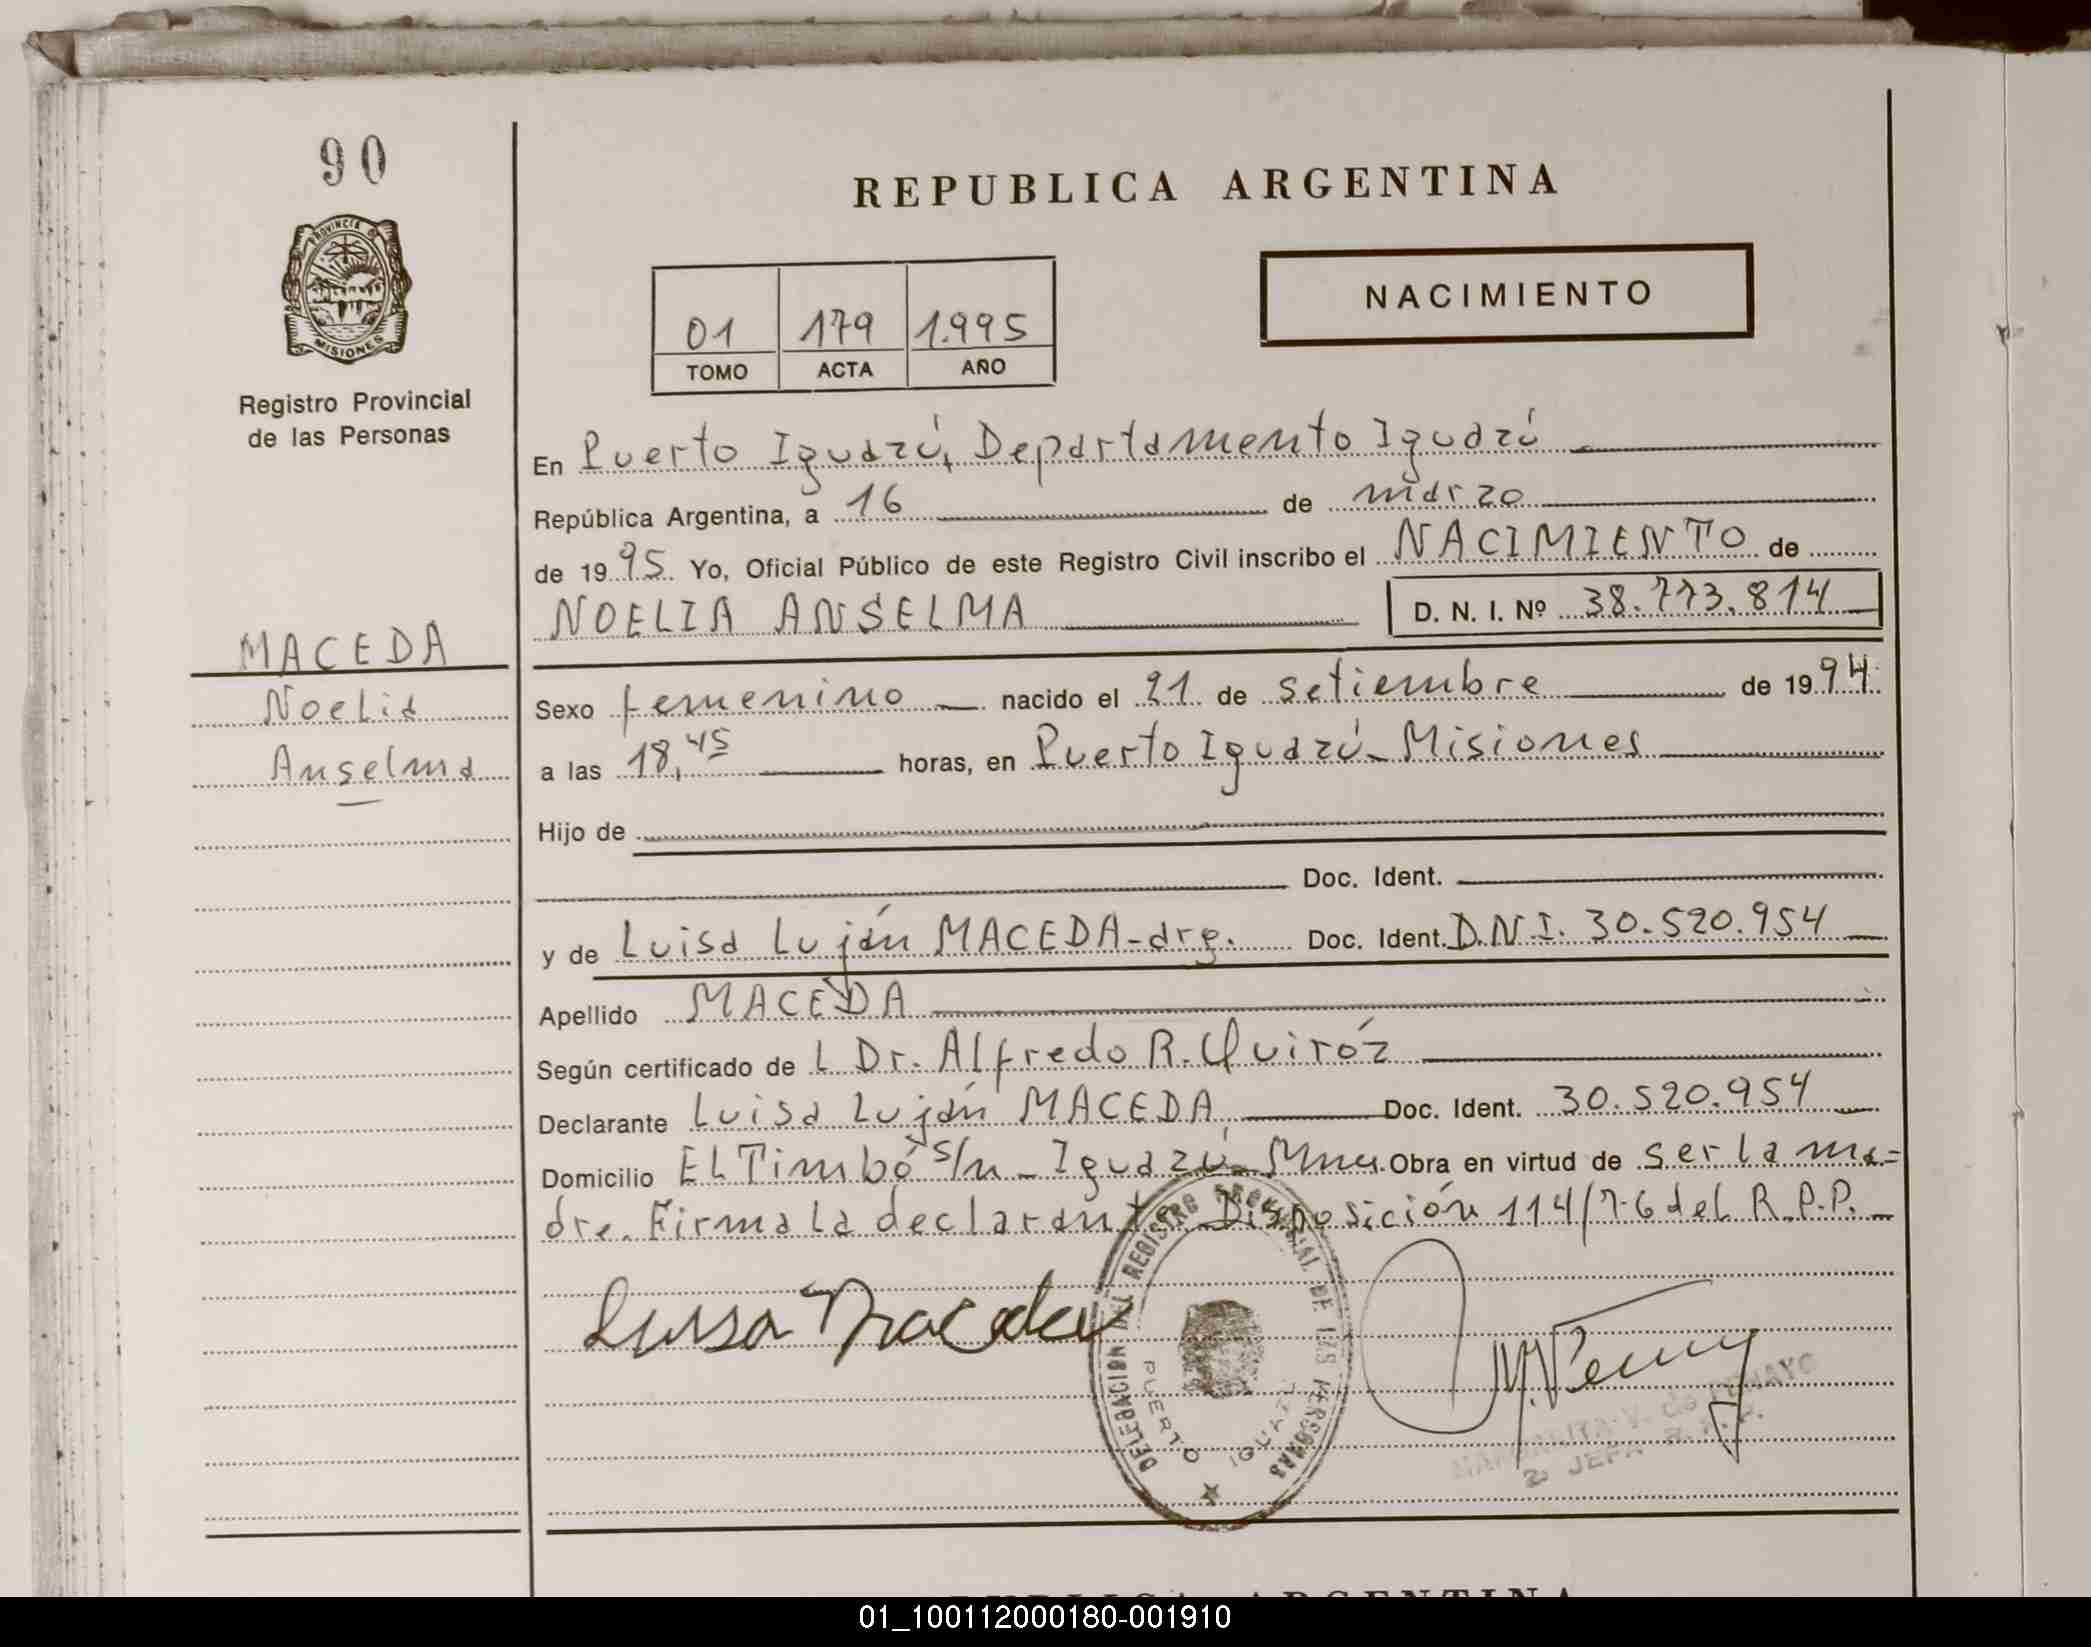 90
REPUBLICA ARGENTINA
PROVINCIA D
MISIONES
Registro Provincial
de las Personas
01 179 1.995
TOMO ACTA AÑO
NACIMIENTO
En Puerto Iguazú, Departamento Iguazú
República Argentina, a 16 de marzo
de 1995 Yo, Oficial Público de este Registro Civil inscribo el NACIMIENTO de
NOELIA ANSELMA D. N. I. Nº 38.773.814
MACEDA
Noelia
Anselma
Sexo femenino nacido el 21 de setiembre de 1994.
a las 18,45 horas, en Puerto Iguazú - Misiones
Hijo de
Doc. Ident.
y de Luisa Luján MACEDA - arg. Doc. Ident. D.N.I. 30.520.954
Apellido MACEDA
Según certificado de L Dr. Alfredo R. Quiróz
Declarante Luisa Luján MACEDA Doc. Ident. 30.520.954
Domicilio El Timbó s/n - Iguazú - Mnes. Obra en virtud de ser la ma=
dre. Firma la declarante. Disposición 114/76 del R.P.P.
Luisa Maceda
DELEGACION DEL REGISTRO PROVINCIAL DE LAS PERSONAS
PUERTO IGUAZU
JEFA R.P.P.
REPUBLICA ARGENTINA
01_100112000180-001910